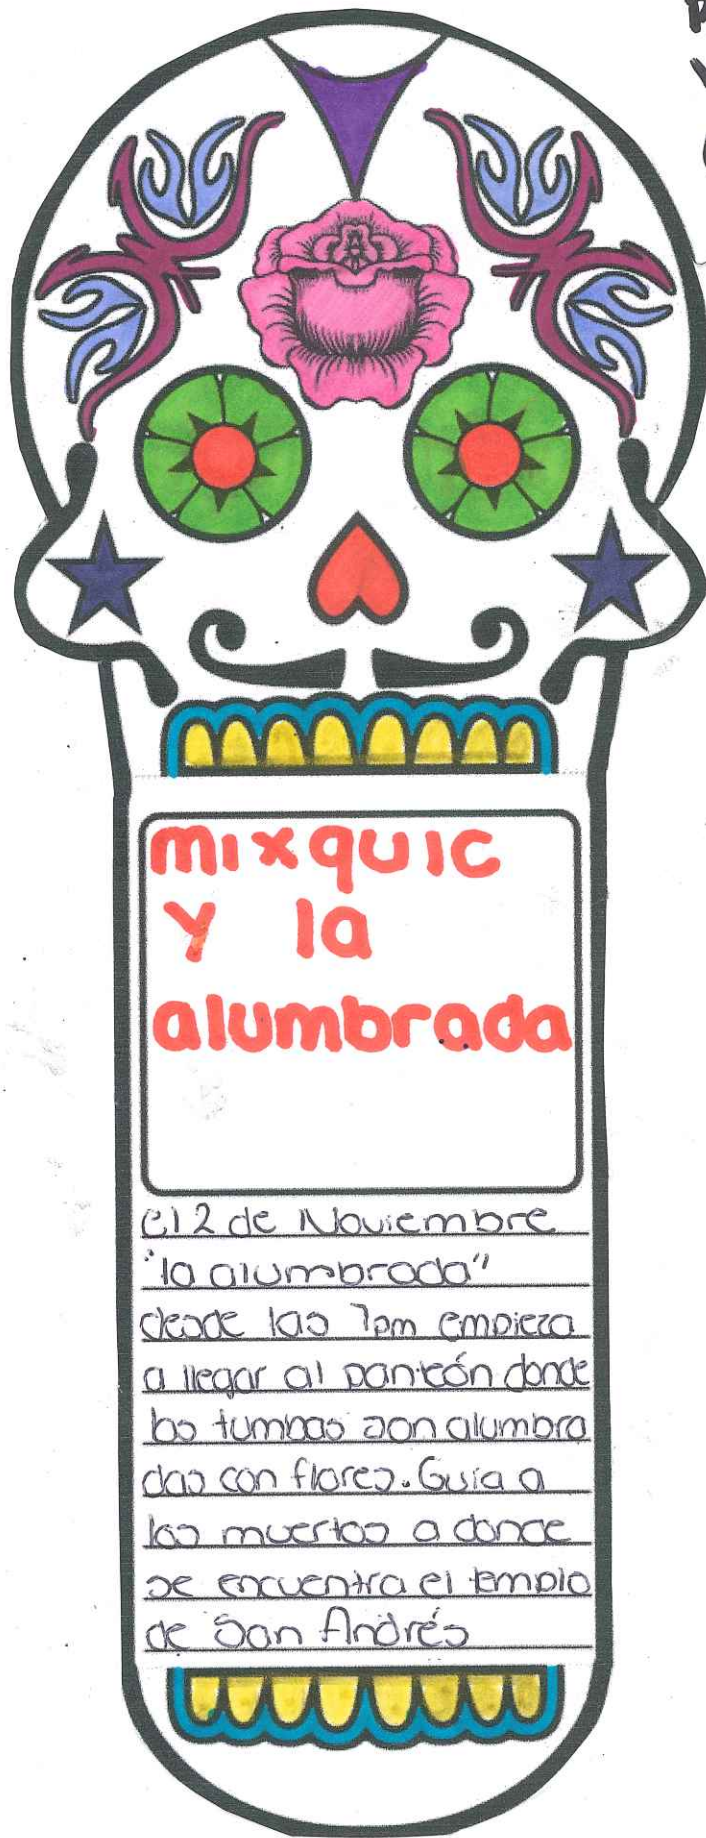 mixquic
y la
alumbrada
el 2 de Noviembre
"la alumbrada"
desde las 7pm empieza
a llegar al panteón donde
las tumbas son alumbra
das con flores. Guia a
los muertos a donde
se encuentra el templo
de San Andrés